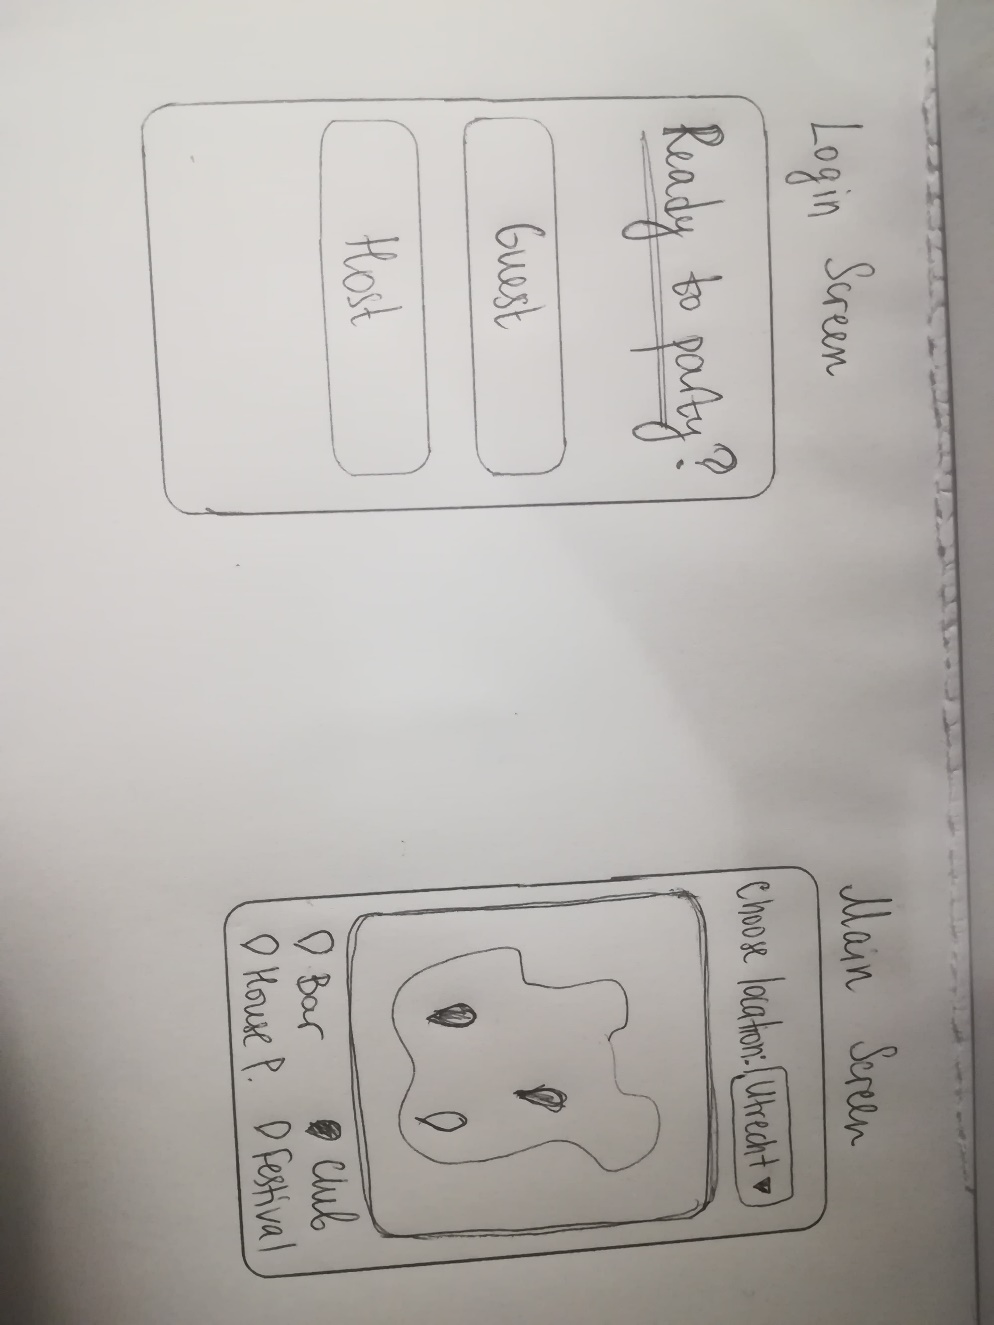 Login Screen
Ready to party?
Guest
Host
Main Screen
Choose location: Utrecht
Bar
Club
House P.
Festival